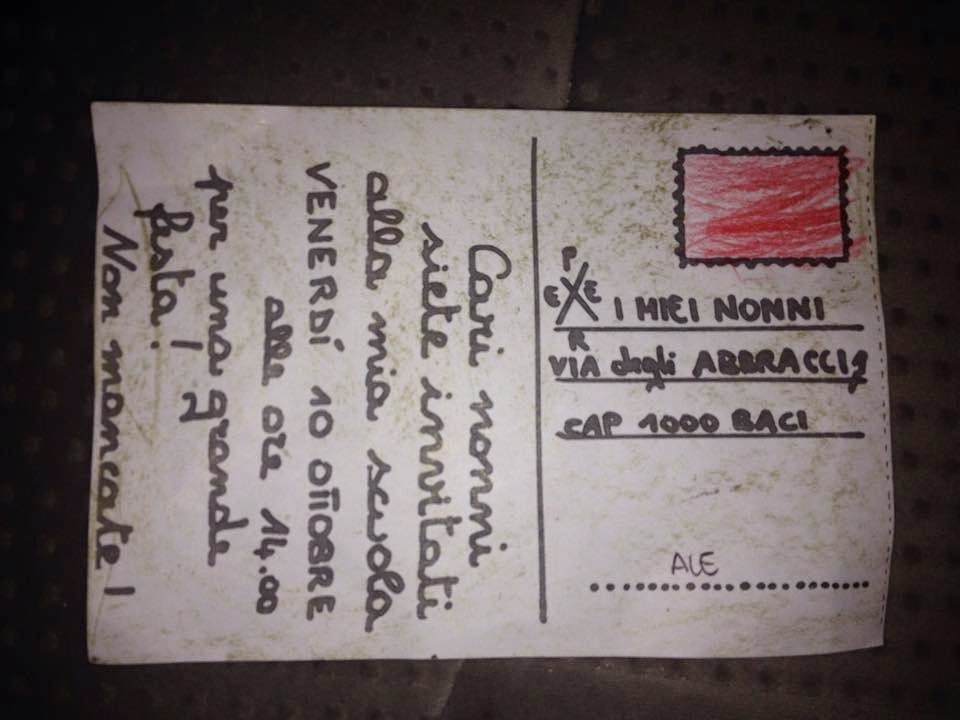 Cari nonni
siete invitati
alla mia scuola
VENERDÍ 10 OTTOBRE
alle ore 14.00
per una grande
festa!
Non mancate!
I MIEI NONNI
VIA degli ABBRACCI
CAP 1000 BACI
ALE